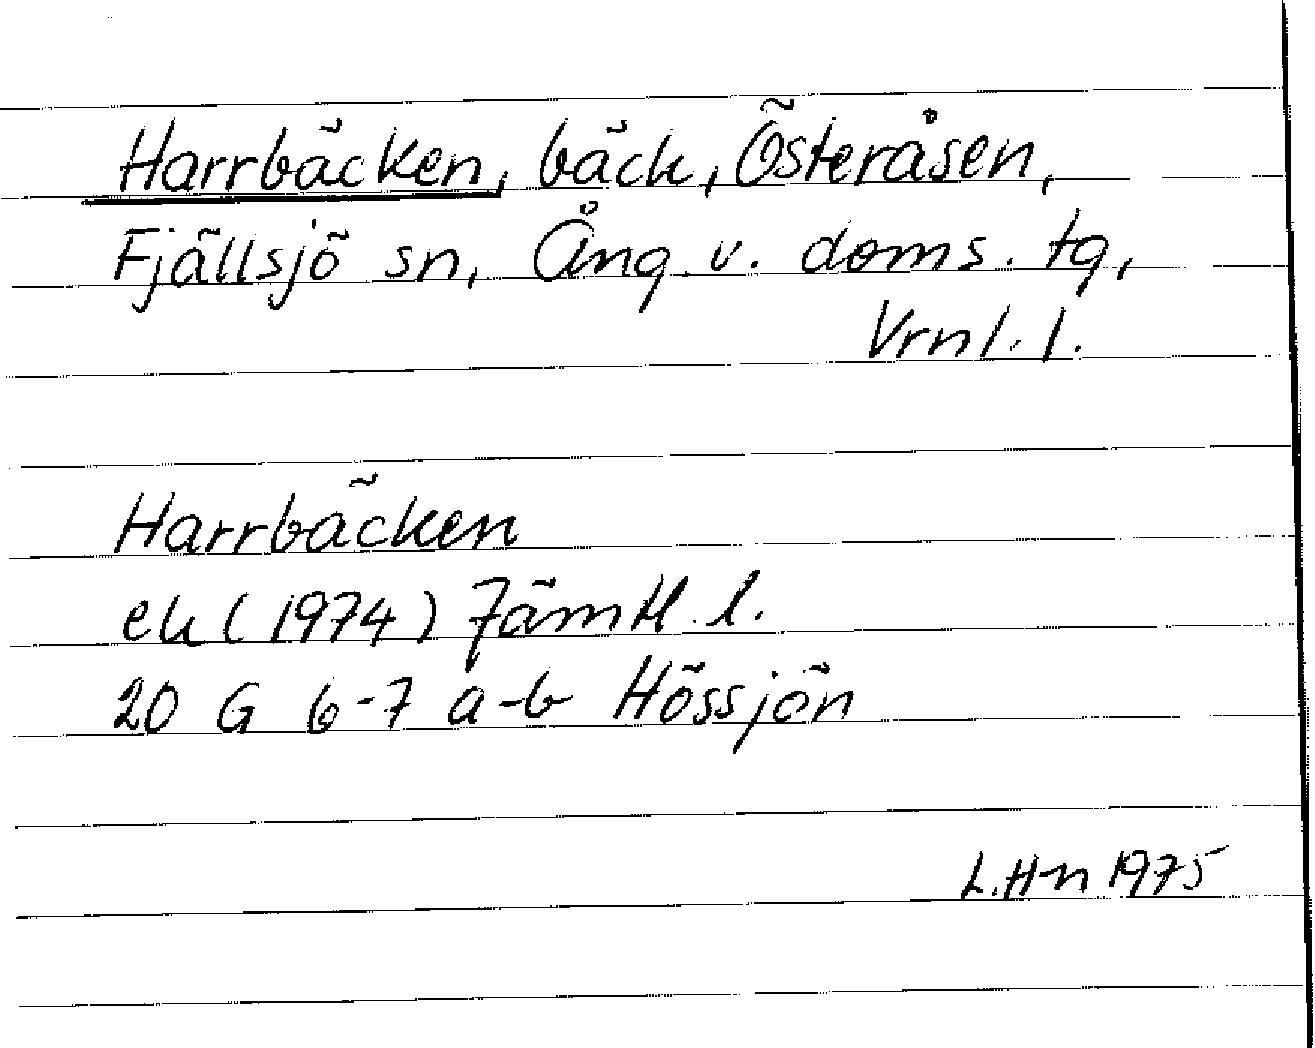 Harrbäcken, bäck, Österåsen,
Fjällsjö sn, Ång. v. doms. tg,
Vrnl. l.
Harrbäcken
ek (1974) Jämtl. l.
20 G 6-7 a-b Hössjön
L.H-n 1975